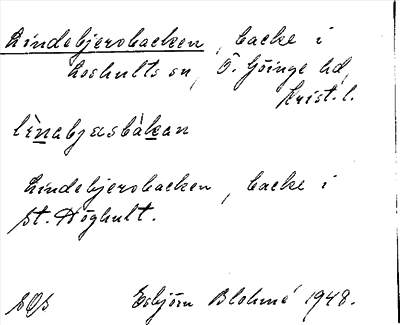 Lindebjersbacken, backe i
Loshults sn, Ö. Göinge hd,
Krist. l.
lìnabjæsbàkan
Lindebjersbacken, backe i
St. Höghult.
Esbjörn Blohmé 1948.